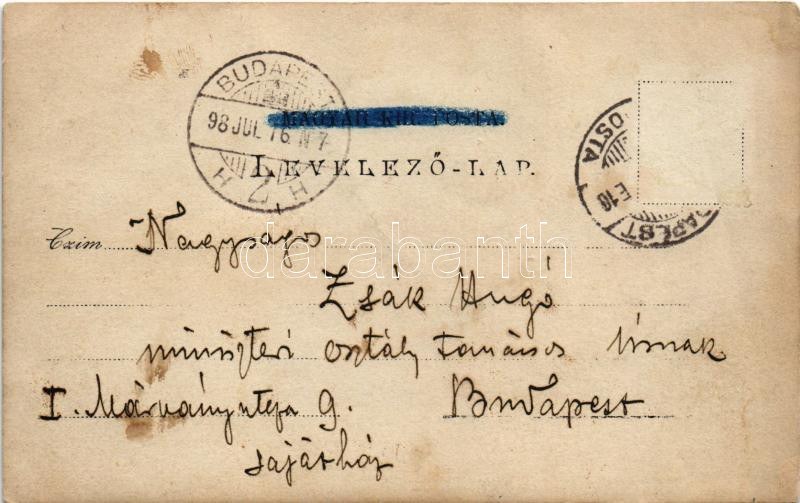 BUDAPEST
98 JUL. 16. N 7
H 7 H
MAGYAR KIR. POSTA.
LEVELEZŐ-LAP.
OSTA
E 16
BUDAPEST
Czim Nagyságos
darabanth
Zsák Hugó
miniszteri osztály tanácsos Úrnak
I. Márvány utcza 9. Budapest
saját ház